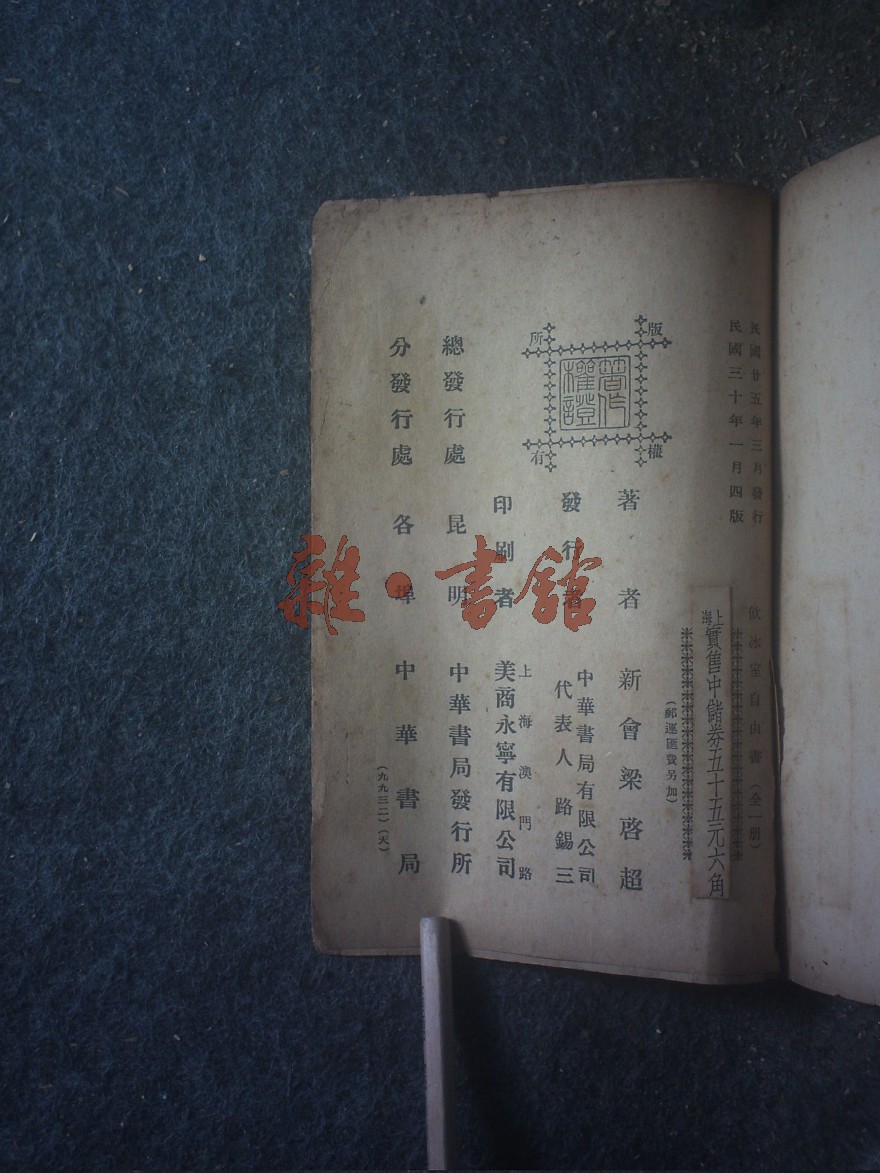 民國廿五年三月發行
民國三十年一月四版
飲冰室自由書(全一册)
上海實售中儲券五十五元六角
(郵運匯費另加)
版權所有
著作權證
著者 新會梁啓超
發行者 中華書局有限公司
代表人 路錫三
上海澳門路
印刷者 美商永寧有限公司
總發行處 昆明 中華書局發行所
分發行處 各埠 中華書局
(九九三二)(天)
雜·書館